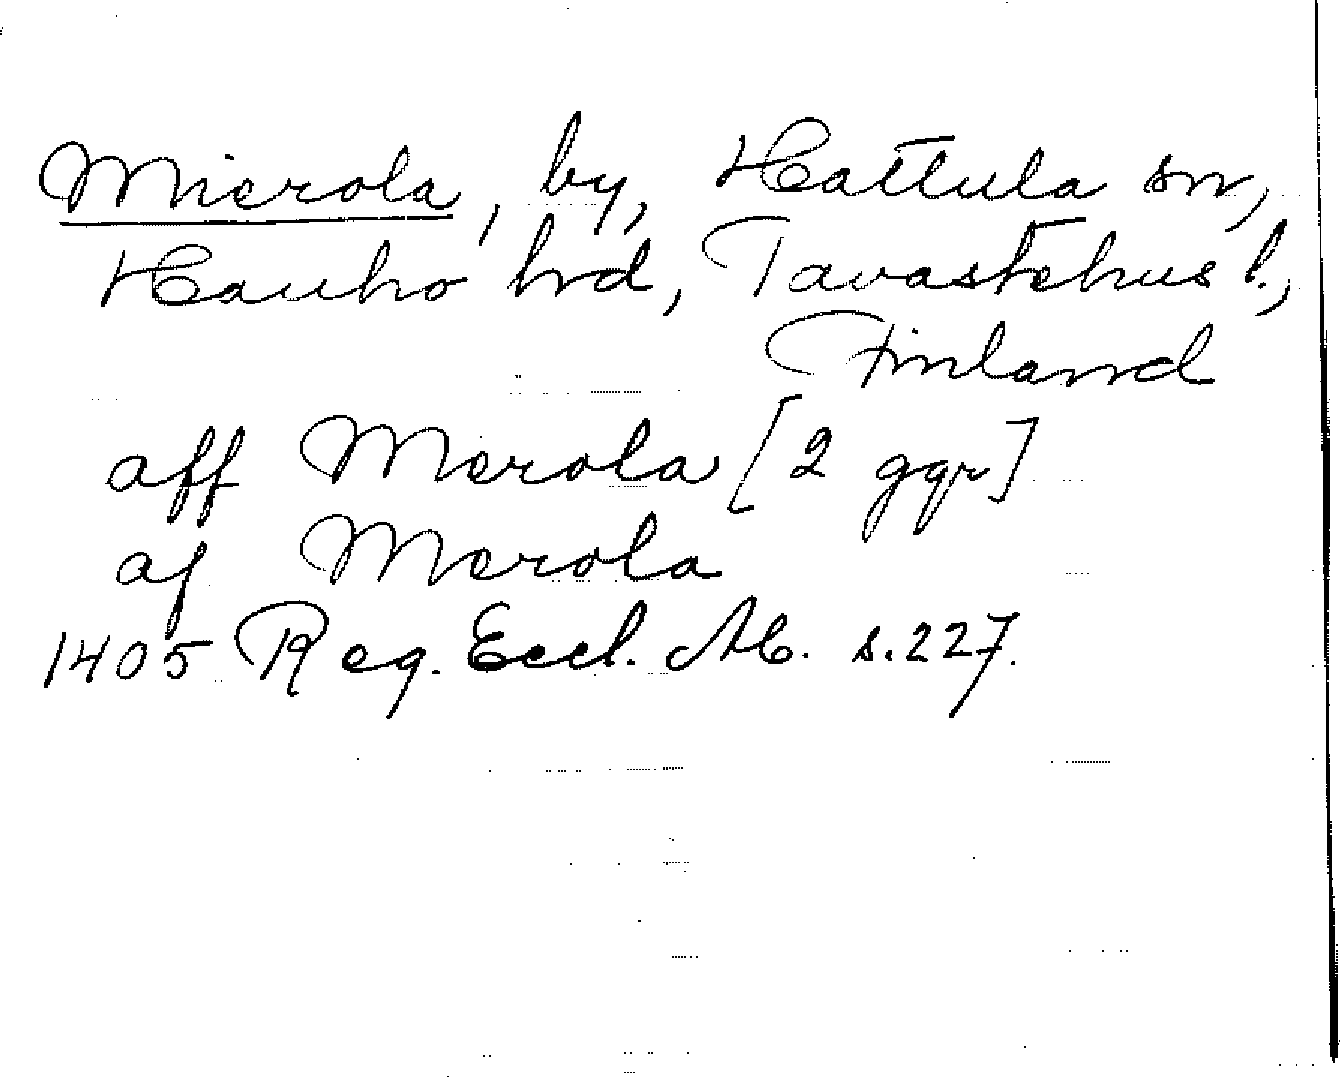 Mierola, by, Hattula sn,
Hauho hrd, Tavastehus l.,
Finland
aff Merola [2 ggr]
af Merola
1405 Reg. Eccl. Ab. s. 227.